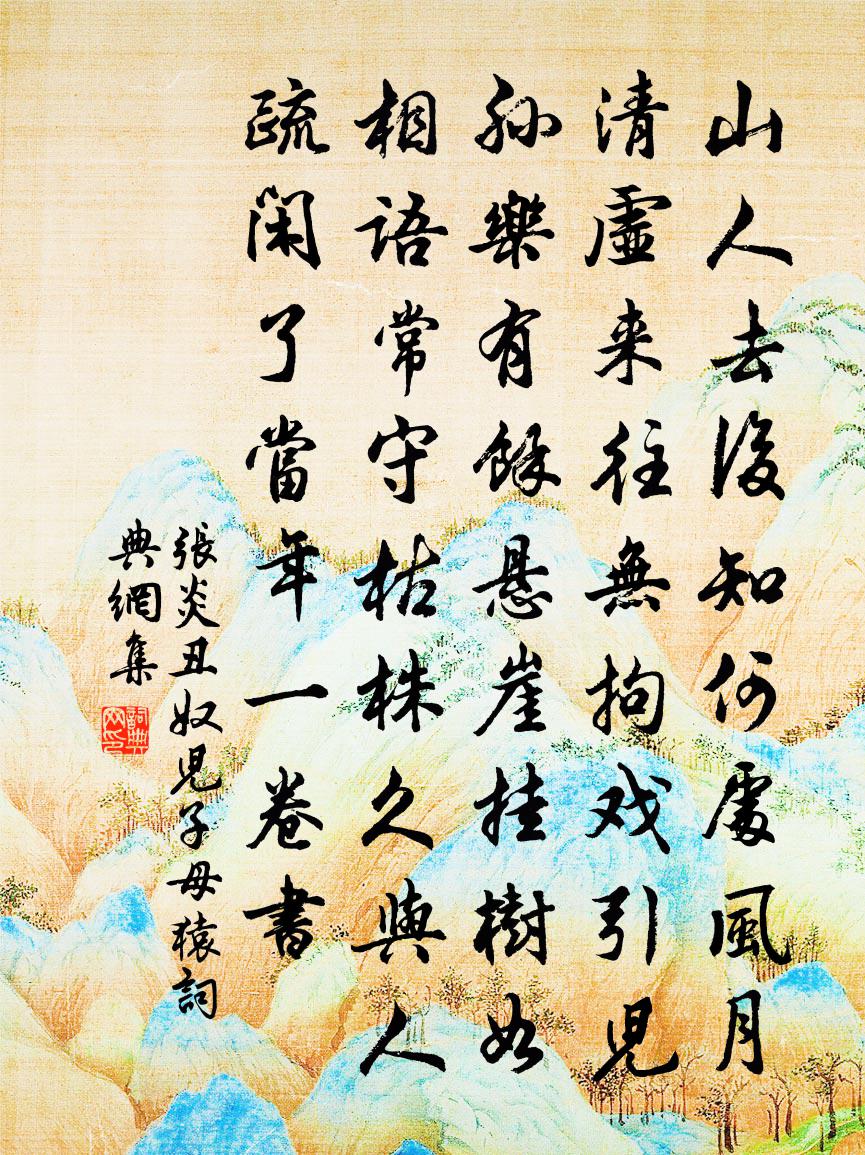 山人去後知何處風月
清虛来往無拘戏引兒
孫樂有餘悬崖挂樹如
相語常守枯株久與人
疏闲了當年一卷書
張炎丑奴兒子母猿詞
典網集
詞典网印